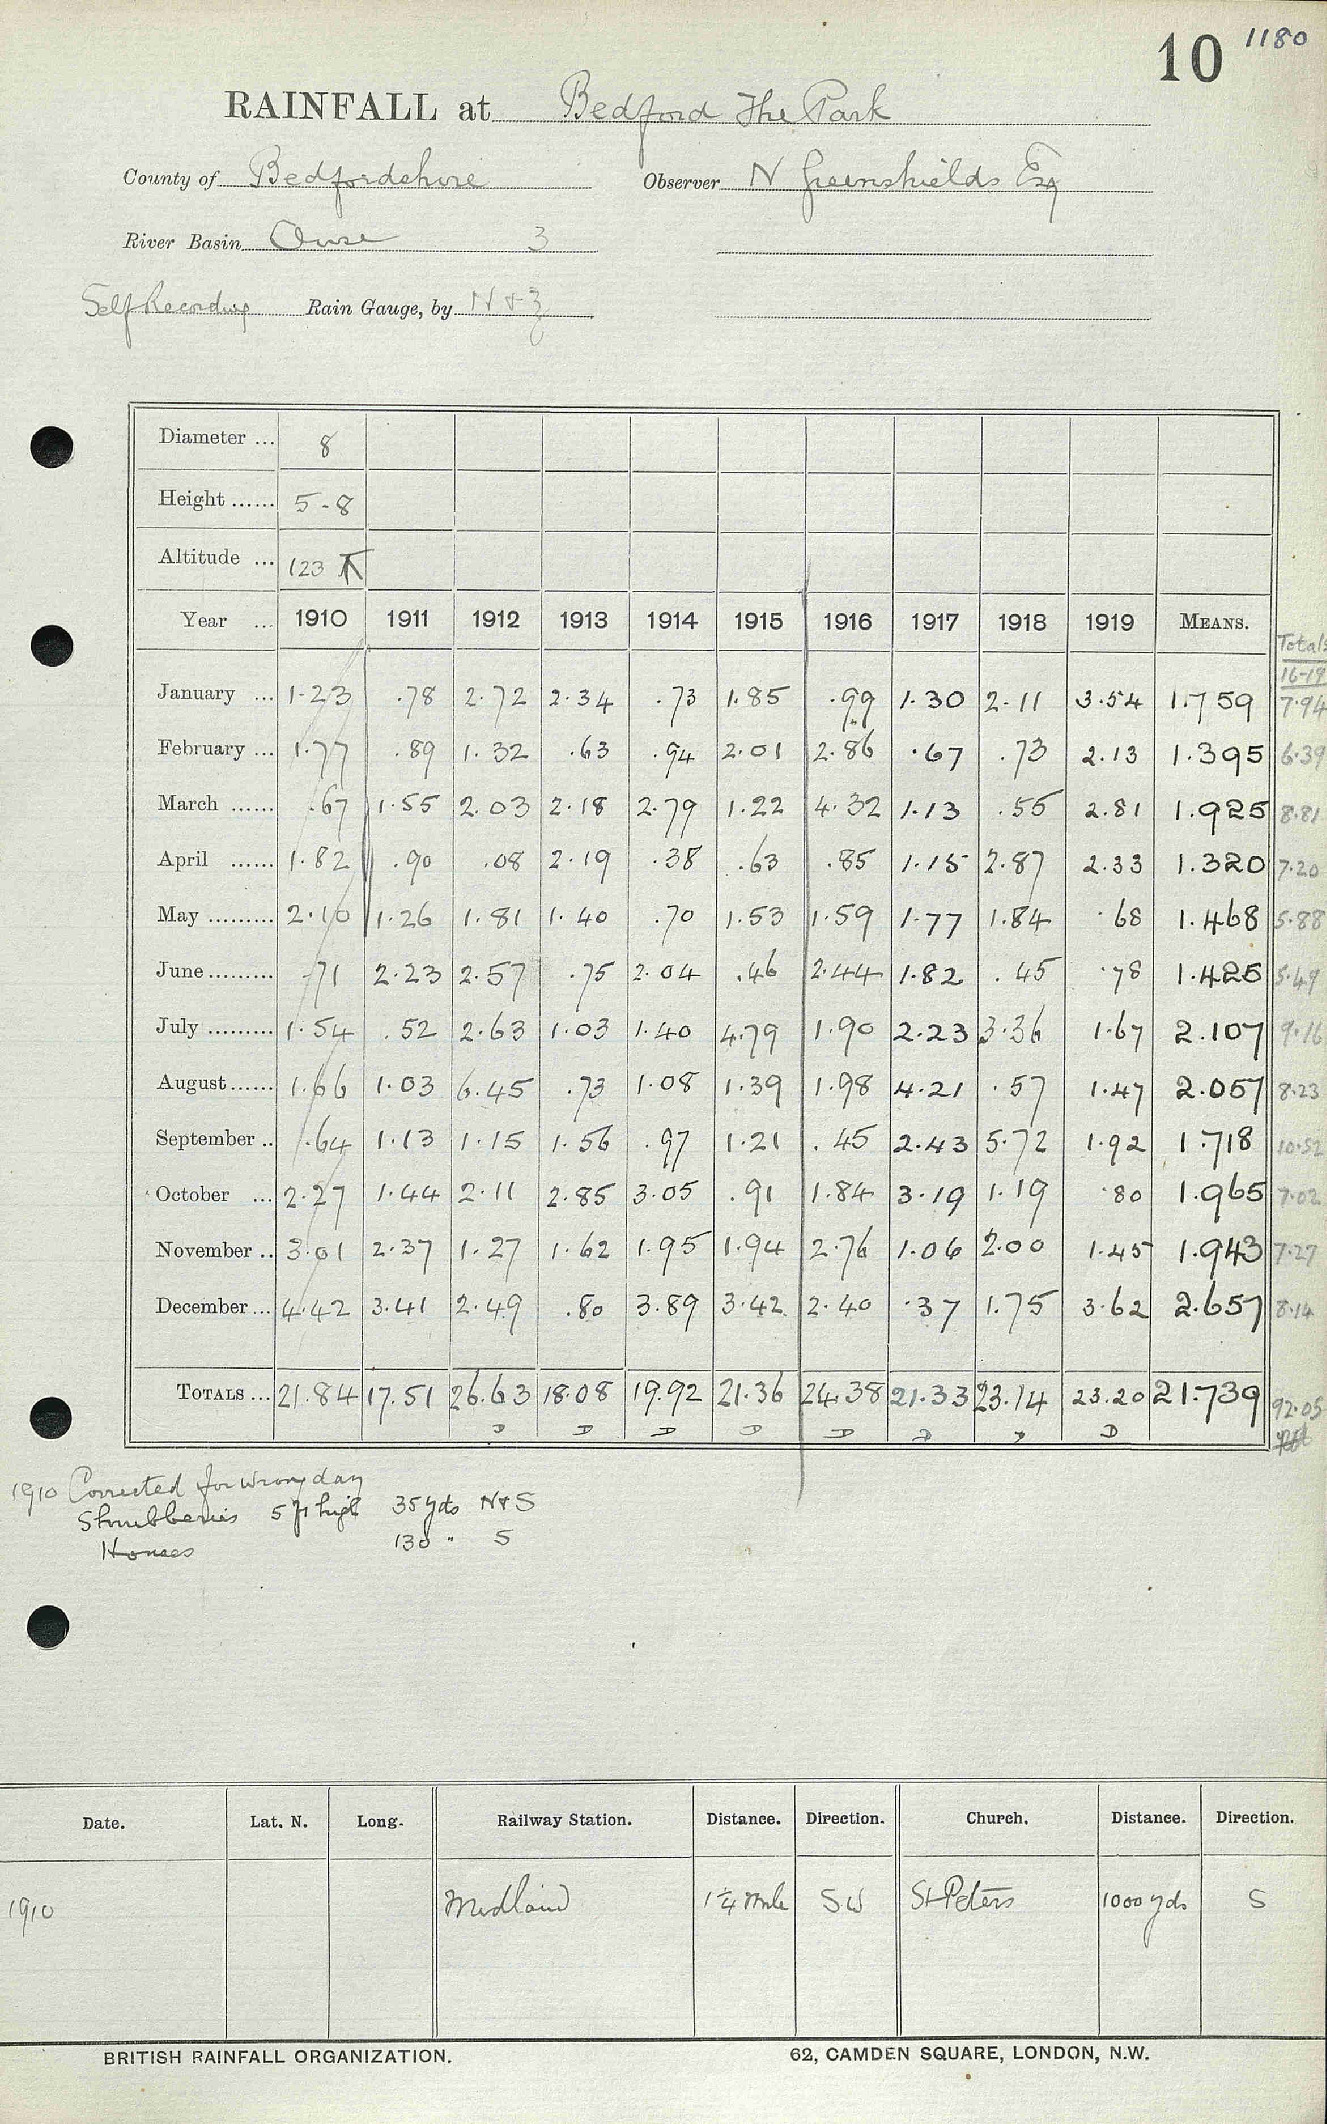 10 1180
RAINFALL at Bedford The Park
County of Bedfordshire Observer N Greenshields Esq
River Basin Ouse 3
Self Recording Rain Gauge, by N & Z
Diameter ... 8
Height ...... 5-8
Altitude ... 123
Year ... 1910 1911 1912 1913 1914 1915 1916 1917 1918 1919 MEANS. Totals 16-19
January ... 1.23 .78 2.72 2.34 .73 1.85 .99 1.30 2.11 3.54 1.759 7.94
February ... 1.77 .89 1.32 .63 .94 2.01 2.86 .67 .73 2.13 1.395 6.39
March ...... .67 1.55 2.03 2.18 2.79 1.22 4.32 1.13 .55 2.81 1.925 8.81
April ...... 1.82 .90 .08 2.19 .38 .63 .85 1.15 2.87 2.33 1.320 7.20
May ......... 2.10 1.26 1.81 1.40 .70 1.53 1.59 1.77 1.84 .68 1.468 5.88
June ......... .71 2.23 2.57 .75 2.04 .46 2.44 1.82 .45 .78 1.425 5.49
July ......... 1.54 .52 2.63 1.03 1.40 4.79 1.90 2.23 3.36 1.67 2.107 9.16
August ...... 1.66 1.03 6.45 .73 1.08 1.39 1.98 4.21 .57 1.47 2.057 8.23
September .. .64 1.13 1.15 1.56 .97 1.21 .45 2.43 5.72 1.92 1.718 10.52
October ... 2.27 1.44 2.11 2.85 3.05 .91 1.84 3.19 1.19 .80 1.965 7.02
November .. 3.01 2.37 1.27 1.62 1.95 1.94 2.76 1.06 2.00 1.45 1.943 7.27
December ... 4.42 3.41 2.49 .80 3.89 3.42 2.40 .37 1.75 3.62 2.657 8.14
TOTALS ... 21.84 17.51 26.63 18.08 19.92 21.36 24.38 21.33 23.14 23.20 21.739 92.05
D D D D D D D D
1910 Corrected for wrong day
Shrubberies 5 ft high 35 yds N & S
Houses 130 " S
Date. Lat. N. Long. Railway Station. Distance. Direction. Church. Distance. Direction.
1910 Midland 1¼ mile SW St Peters 1000 yds S
BRITISH RAINFALL ORGANIZATION. 62, CAMDEN SQUARE, LONDON, N.W.